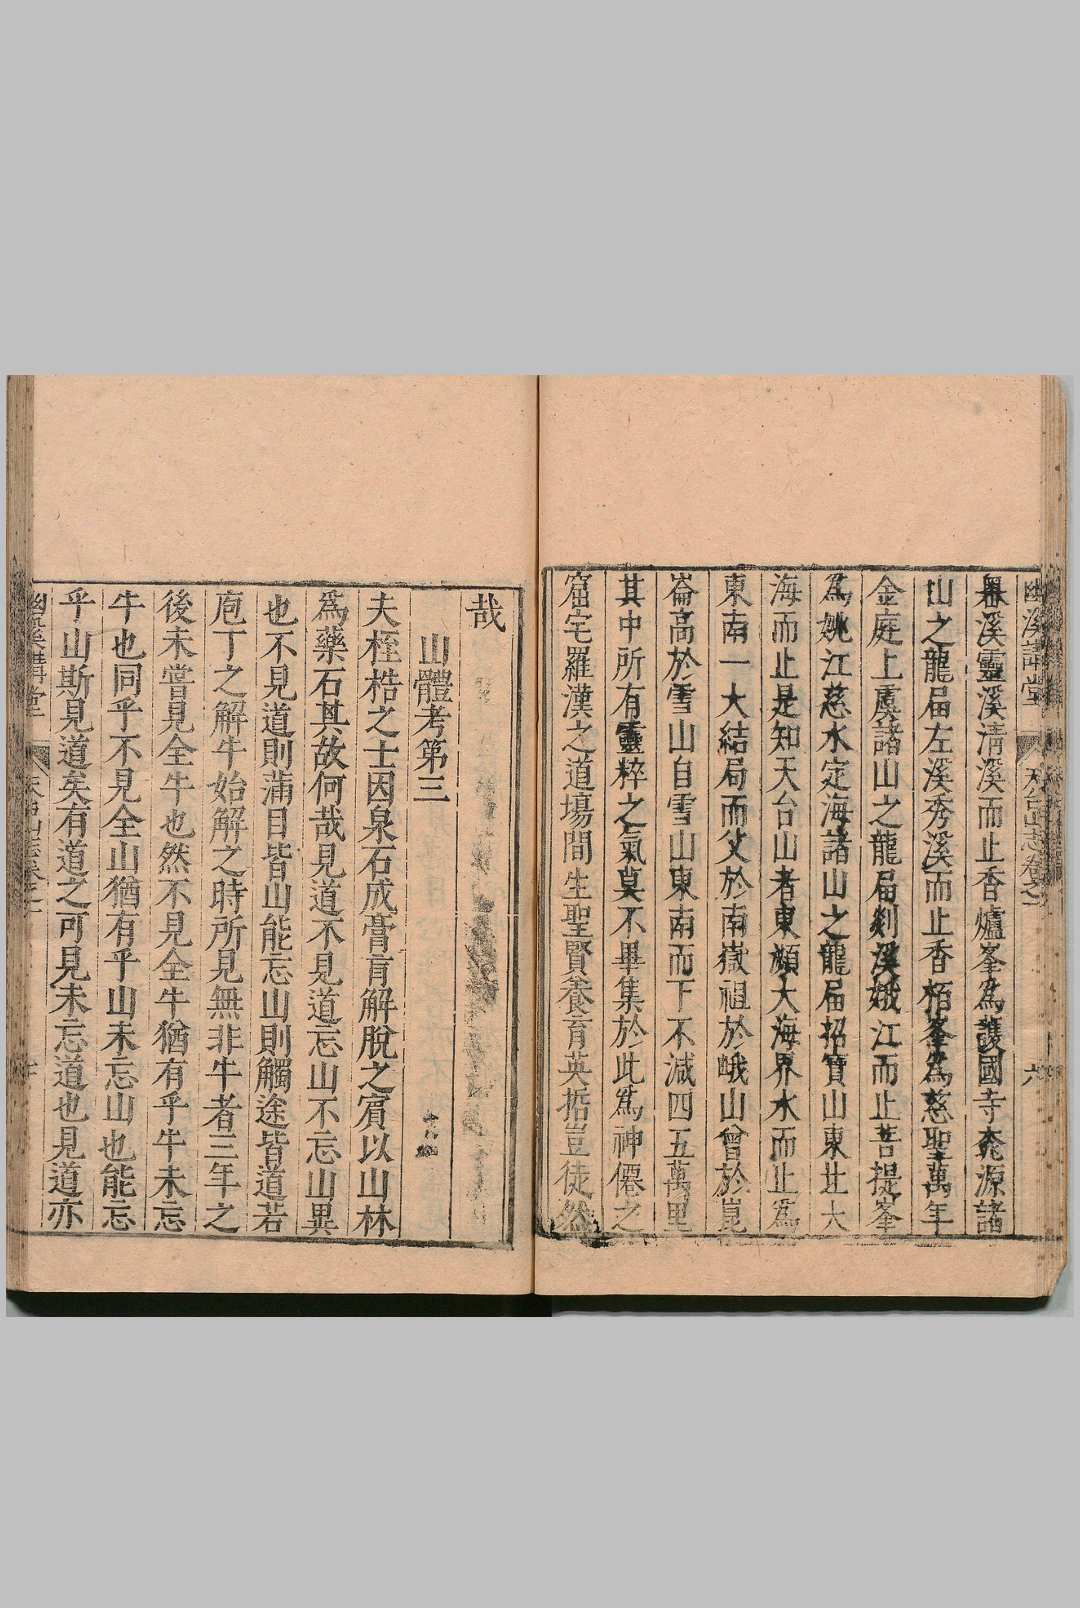 幽溪講堂 天台山志卷之一 六
界溪靈溪清溪而止香爐峯為護國寺桃源諸
山之龍屆左溪秀溪而止香栢峯為慈聖萬年
金庭上虞諸山之龍屆剡溪娥江而止菩提峯
為姚江慈水定海諸山之龍屆招寶山東北大
海而止是知天台山者東瀕大海界水而止為
東南一大結局而父於南嶽祖於峨山曾於崑
崙高於雪山自雪山東南而下不減四五萬里
其中所有靈粹之氣莫不畢集於此為神僊之
窟宅羅漢之道場間生聖賢養育英拓豈徒然
哉
山體考第三
夫桎梏之士因泉石成膏肓解脫之賓以山林
為藥石其故何哉見道不見道忘山不忘山異
也不見道則蒲目皆山能忘山則觸途皆道若
庖丁之解牛始解之時所見無非牛者三年之
後未嘗見全牛也然不見全牛猶有乎牛未忘
牛也同乎不見全山猶有乎山未忘山也能忘
乎山斯見道矣有道之可見未忘道也見道亦
幽溪講堂